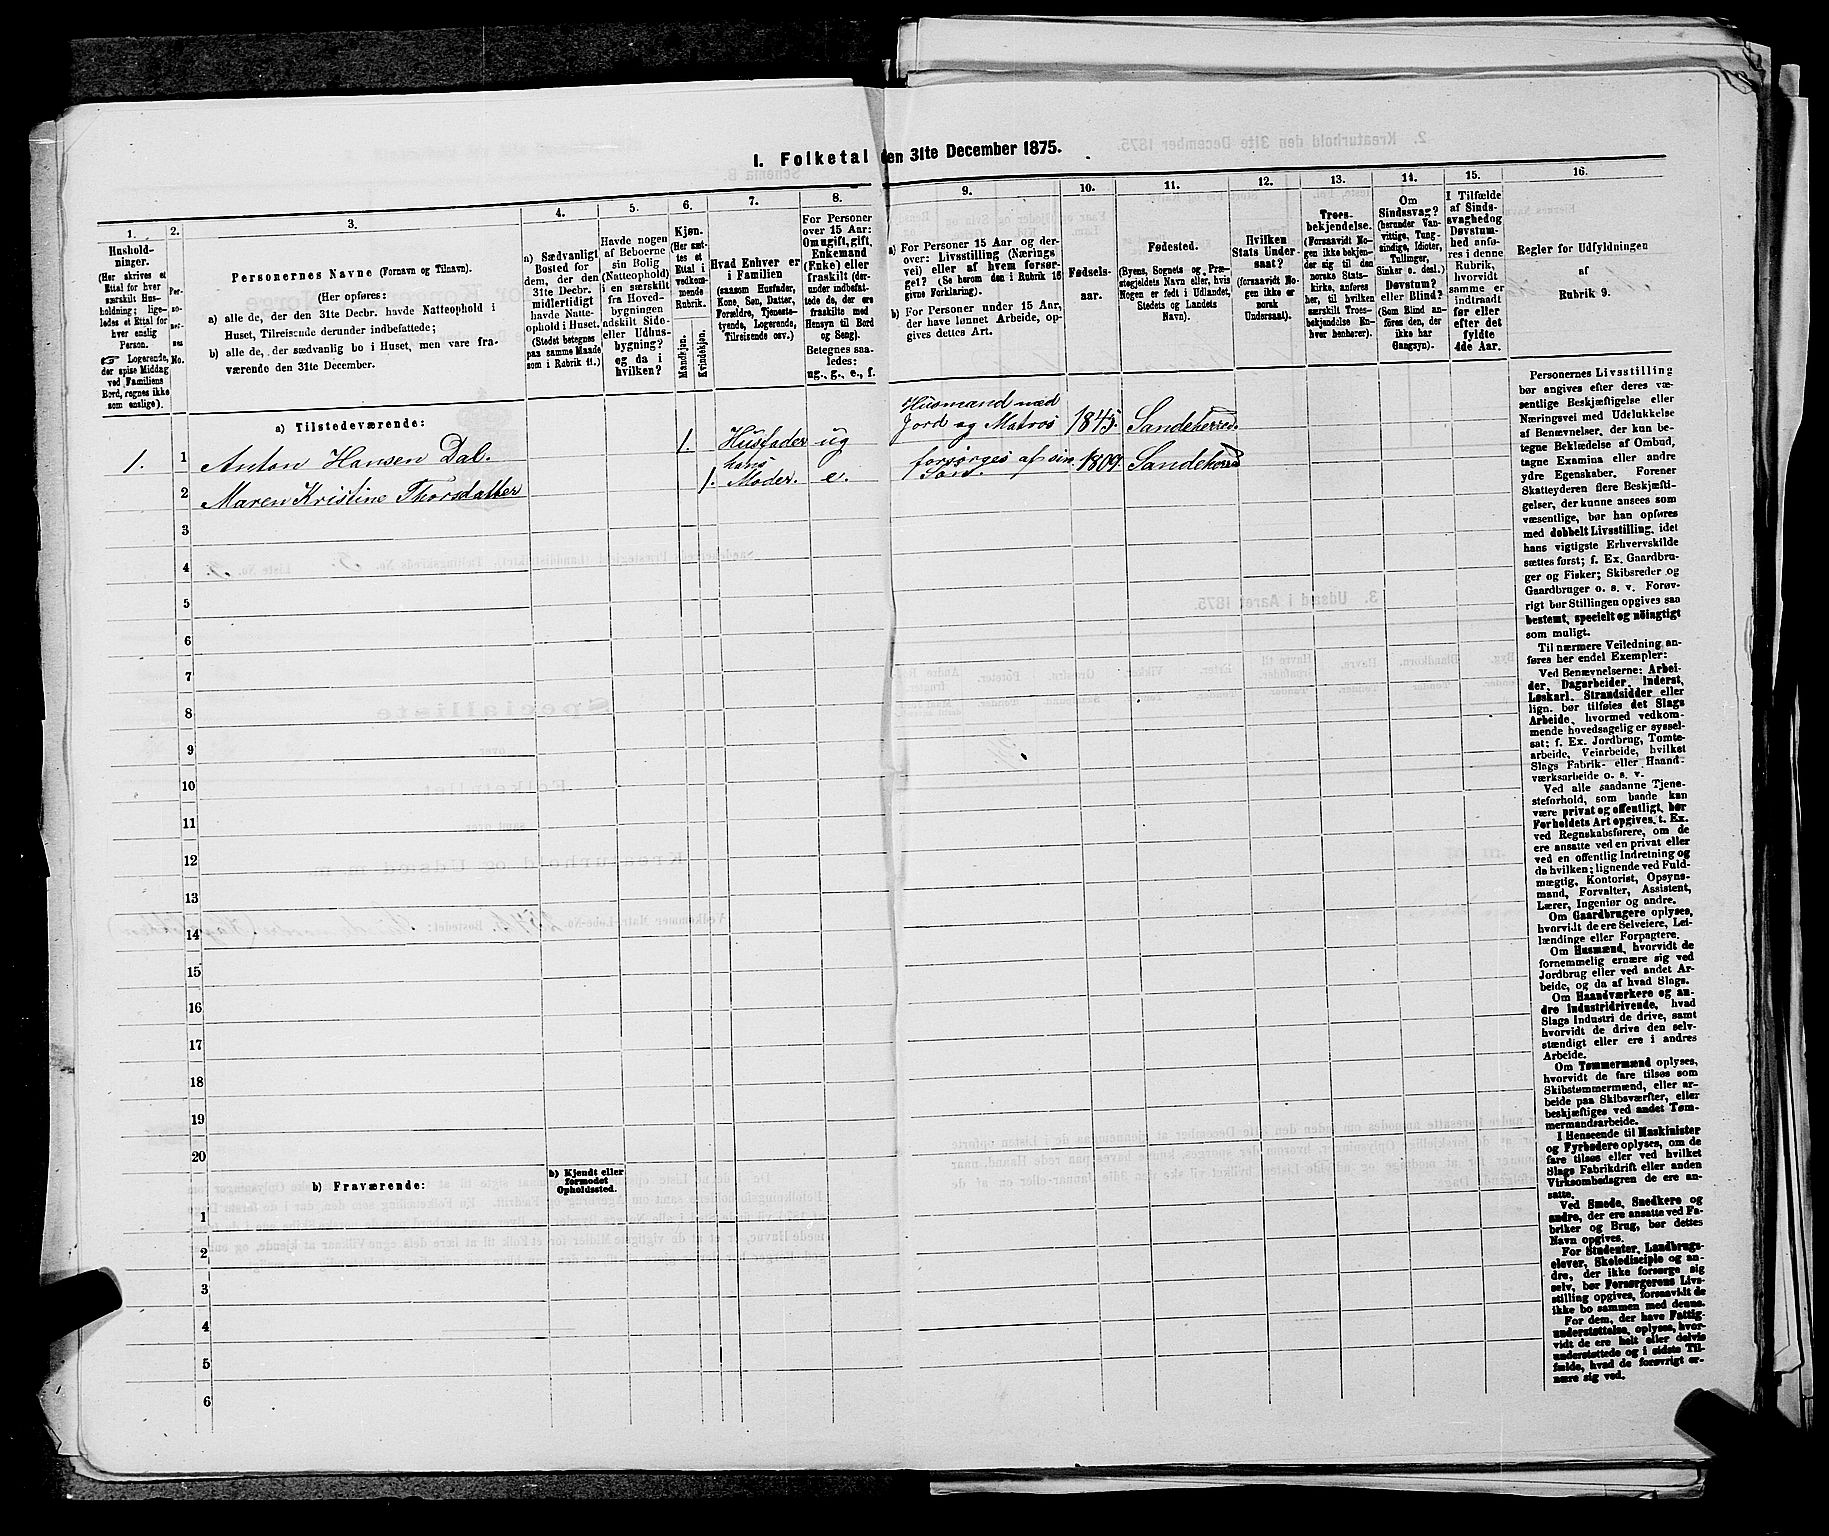 I. Folketal den 31te December 1875.
1.
Husholdninger.
(Her skrives et
Ettal for hver
særskilt Husholdning;
ligeledes et Ettal for
hver enslig
Person.
☞ Logerende,
der spise Middag
ved Familiens
Bord, regnes ikke
som enslige).
2.
Personernes
No.
3.
Personernes Navne (Fornavn og Tilnavn).
(Her opføres:
a) alle de, der den 31te Decbr. havde Natteophold i
Huset, Tilreisende derunder indbefattede;
b) alle de, der sædvanlig bo i Huset, men vare fraværende
den 31te December.
4.
a) Sædvanligt
Bosted for
dem, der den
31te Decbr.
midlertidigt
havde Natteophold
i Huset.
(Stedet betegnes
paa samme Maade
som i Rubrik 11.)
5.
Havde nogen
af Beboerne
sin Bolig
(Natteophold)
i en særskilt
fra Hovedbygningen
adskilt Side-
eller Udhusbygning?
og da i
hvilken?
6.
Kjøn.
(Her sættes
et
Ettal i
vedkommende
Rubrik.
Mandkjøn.
Kvindekjøn.
7.
Hvad Enhver er
i Familien
(saasom Husfader,
Kone, Søn, Datter,
Forældre, Tjenestetyende,
Logerende,
Tilreisende osv.)
8.
For Personer
over 15 Aar:
Om ugift, gift,
Enkemand
(Enke) eller
fraskilt (derunder
indbefattede
de, der ere
fraskilte med
Hensyn til Bord
og Seng).
Betegnes saaledes:
ug., g., e., f.
9.
a) For Personer 15 Aar og derover:
Livsstilling (Næringsvei)
eller af hvem forsørget?
(Se herom den i Rubrik 16
givne Forklaring).
b) For Personer under 15 Aar,
der have lønnet Arbeide, opgives
dettes Art.
10.
Fødselsaar.
11.
Fødested.
(Byens, Sognets og Præstegjeldets
Navn eller, hvis
Nogen er født i Udlandet,
Stedets og Landets
Navn).
12.
Hvilken
Stats Undersaat?
(forsaavidt Nogen
ikke er
norsk
Undersaat).
13.
Troesbekjendelse.
(Forsaavidt Nogen
ikke bekjender
sig til den
norske Statskirke,
anføres
her, til hvilken
særskilt Troesbekjendelse
Enhver
henhører).
14.
Om
Sindssvag?
(herunder Vanvittige,
Tungsindige,
Idioter,
Tullinger,
Sinker o. desl.)
Døvstum?
eller Blind?
(Som Blind anføres
den, der
ikke har
Gangsyn).
15.
I Tilfælde
af Sindssvaghed
og
Døvstumhed
anføres
i denne
Rubrik,
hvorvidt
samme er
indtraadt
før eller
efter det
fyldte
4de Aar.
16.
Regler for Udfyldningen
af
Rubrik 9.
a) Tilstedeværende:
1. 1 Anton Hansen Dal. 1. Husfader ug Husmand med Jord og Matros 1845. Sandeherred.
2 Maren Kristine Thorsdatter 1. hans Moder. e. forsørges af sin Jord. 1809. Sandeherred
3
4
5
6
7
8
9
10
11
12
13
14
15
16
17
18
19
20
b) Fraværende:
b) Kjendt eller
formodet
Opholdssted.
1
2
3
4
5
6
Personernes Livsstilling
bør angives efter deres væsentlige
Beskjæftigelse eller
Næringsvei med Udelukkelse
af Benævnelser, der kun betegne
Beklædelse af Ombud,
tagne Examina eller andre
ydre Egenskaber. Forener
Skatteyderen flere Beskjæftigelser,
der kunne ansees som
væsentlige, bør han opføres
med dobbelt Livsstilling, idet
hans vigtigste Erhvervskilde
sættes først; f. Ex. Gaardbruger
og Fisker; Skibsreder og
Gaardbruger o. s. v. Forøvrigt
bør Stillingen opgives saa
bestemt, specielt og nöiagtigt
som muligt.
Til nærmere Veiledning anføres
her endel Exempler:
Ved Benævnelserne: Arbeider,
Dagarbeider, Inderst,
Løskarl, Strandsidder eller
lign. bør tilføies det Slags
Arbeide, hvormed vedkommende
hovedsagelig er sysselsat;
f. Ex. Jordbrug, Tomtearbeide,
Veiarbeide, hvilket
Slags Fabrik- eller Haandværksarbeide
o. s. v.
Ved alle saadanne Tjenesteforhold,
som baade kan
være privat og offentligt, bør
Forholdets Art opgives, t. Ex.
ved Regnskabsførere, om de
ere ansatte ved en privat eller
ved en offentlig Indretning og
da hvilken; lignende ved Fuldmægtig,
Kontorist, Opsynsmand,
Forvalter, Assistent,
Lærer, Ingeniør og andre.
Om Gaardbrugere oplyses,
hvorvidt de ere Selveiere, Leilændinge
eller Forpagtere.
Om Husmænd, hvorvidt de
fornemmelig ernære sig ved
Jordbrug eller ved andet Arbeide,
og da af hvad Slags.
Om Haandværkere og andre
industridrivende, hvad
Slags Industri de drive, samt
hvorvidt de drive den selvstændigt
eller ere i andres
Arbeide.
Om Tømmermænd oplyses,
hvorvidt de fare tilsøs som
Skibstømmermænd, eller arbeide
paa Skibsværfter, eller
beskjæftiges ved andet Tømmermandsarbeide.
I Henseende til Maskinister
og Fyrbødere oplyses, om de
fare tilsøs eller ved hvilket
Slags Fabrikdrift eller anden
Virksomhedsgren de ere ansatte.
Ved Smede, Snedkere og
andre, der ere ansatte ved Fabriker
og Brug, bør dettes
Navn opgives.
For Studenter, Landbrugselever,
Skoledisciple og andre,
der ikke forsørge sig
selv, bør Forsørgerens Livsstilling
opgives, forsaavidt de
ikke bo sammen med denne.
For dem, der have Fattigunderstøttelse,
oplyses, hvorvidt
de ere helt eller delvis
understøttede og i sidste Tilfælde,
hvad de forøvrigt ernære
sig ved.